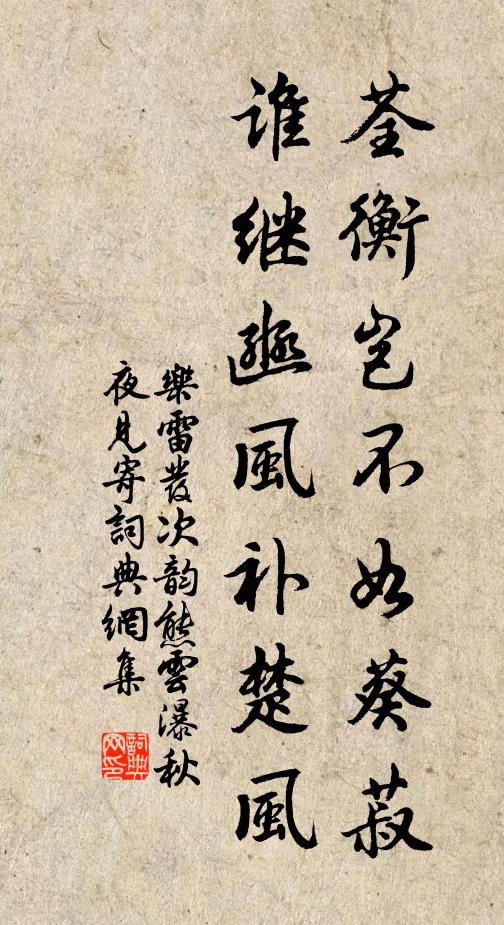 荃衡岂不如葵菽
谁继豳風补楚風
樂雷發次韵熊雲瀑秋
夜见寄詞典網集
詞典网印